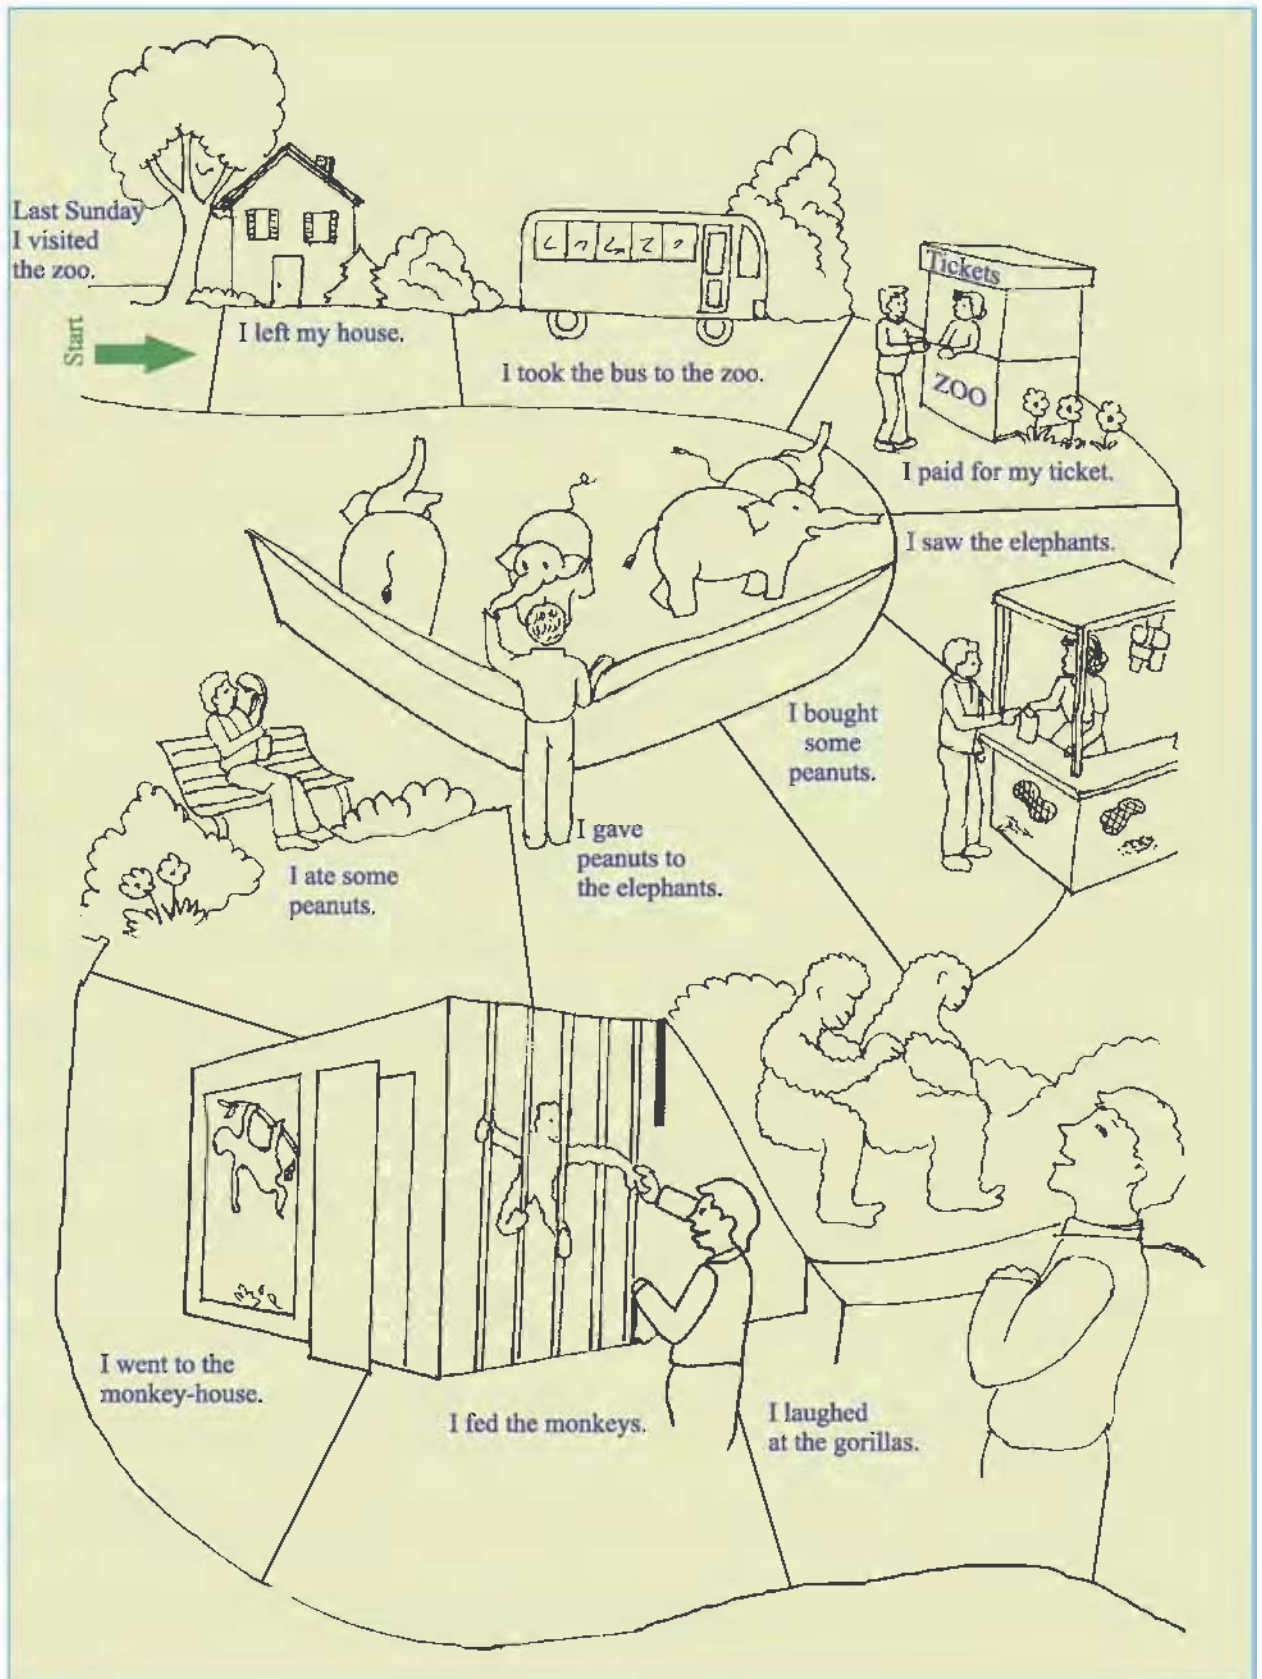 Last Sunday
I visited
the zoo.
Start
I left my house.
I took the bus to the zoo.
Tickets
ZOO
I paid for my ticket.
I saw the elephants.
I bought
some
peanuts.
I gave
peanuts to
the elephants.
I ate some
peanuts.
I went to the
monkey-house.
I fed the monkeys.
I laughed
at the gorillas.